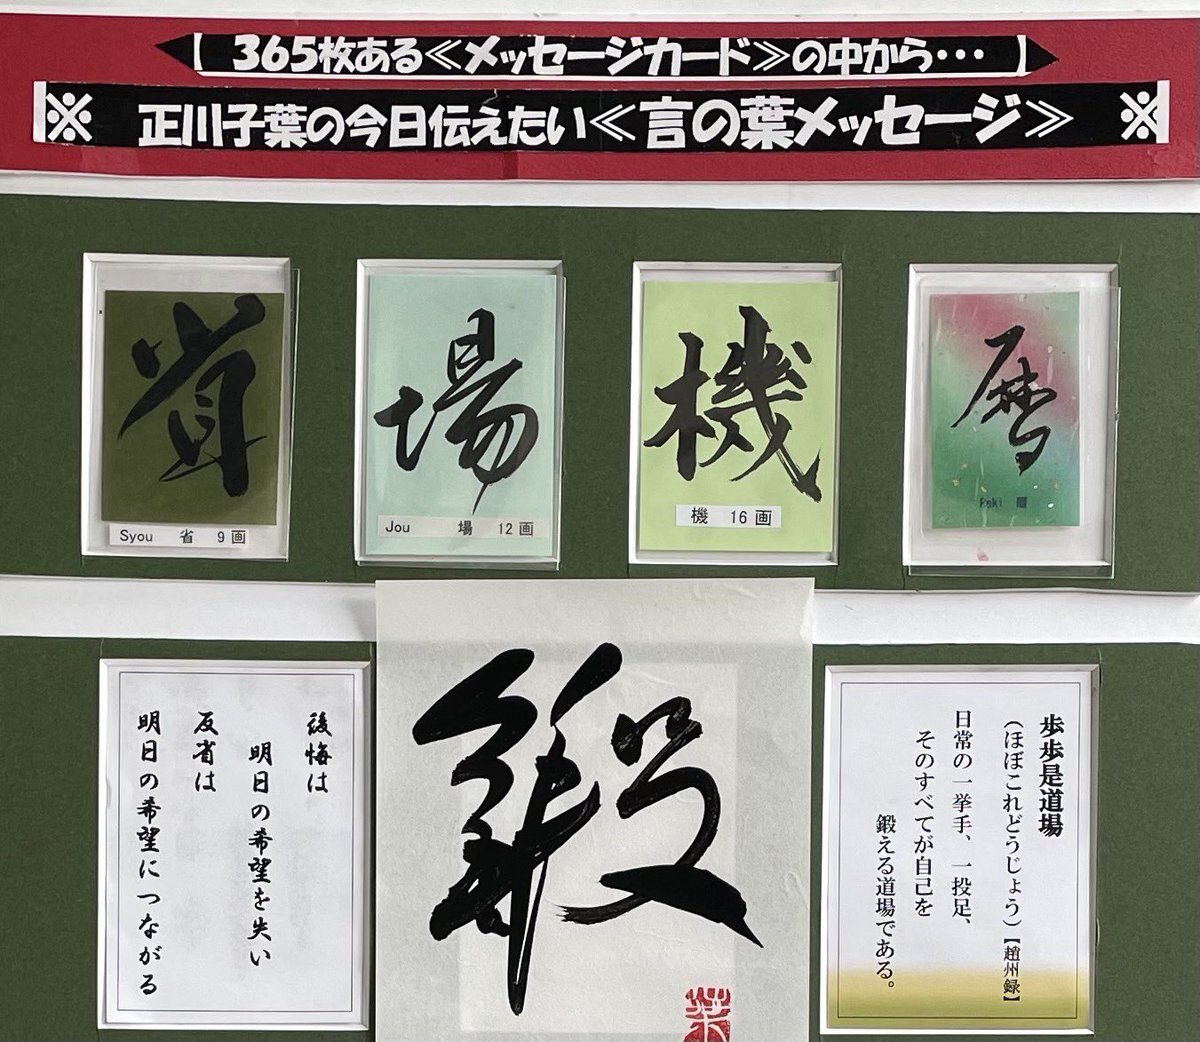 【 365枚ある≪メッセージカード≫の中から・・・ 】
※ 正川子葉の今日伝えたい≪言の葉メッセージ≫ ※
省
Syou 省 9画
場
Jou 場 12画
機
機 16画
暦
Reki 暦
後悔は
明日の希望を失い
反省は
明日の希望につながる
鍛
葉
歩歩是道場
（ほぼこれどうじょう）【趙州録】
日常の一挙手、一投足、
そのすべてが自己を
鍛える道場である。